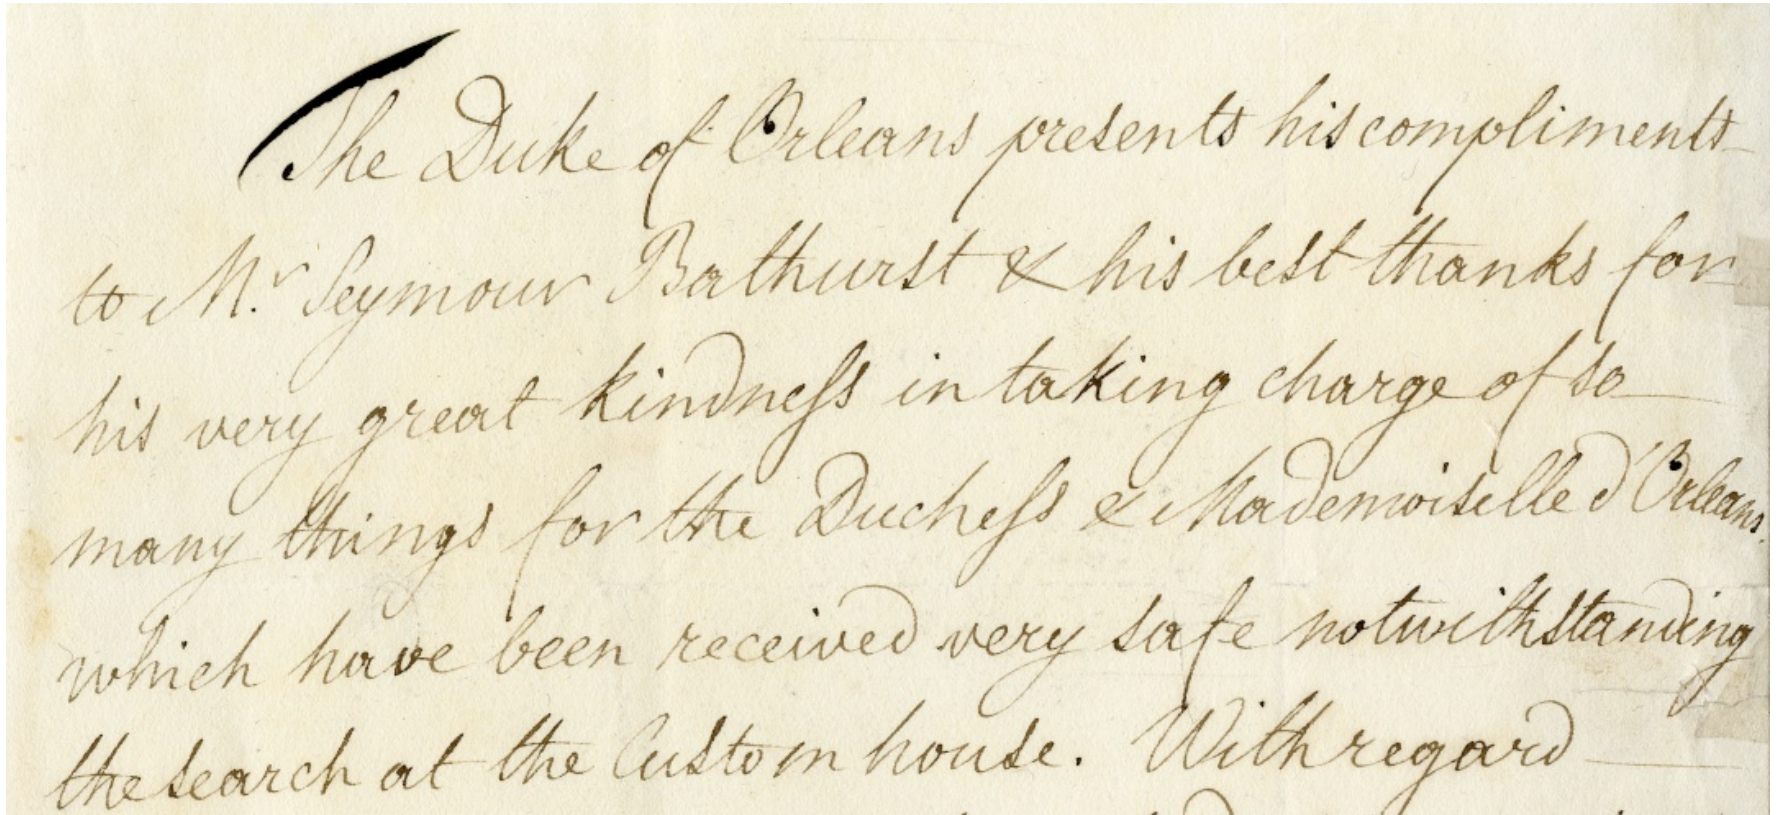 The Duke of Orleans presents his compliments
to Mr. Seymour Bathurst & his best thanks for
his very great kindness in taking charge of so
many things for the Duchess & Mademoiselle d'Orleans.
which have been received very safe notwithstanding
the search at the Custom house. With regard